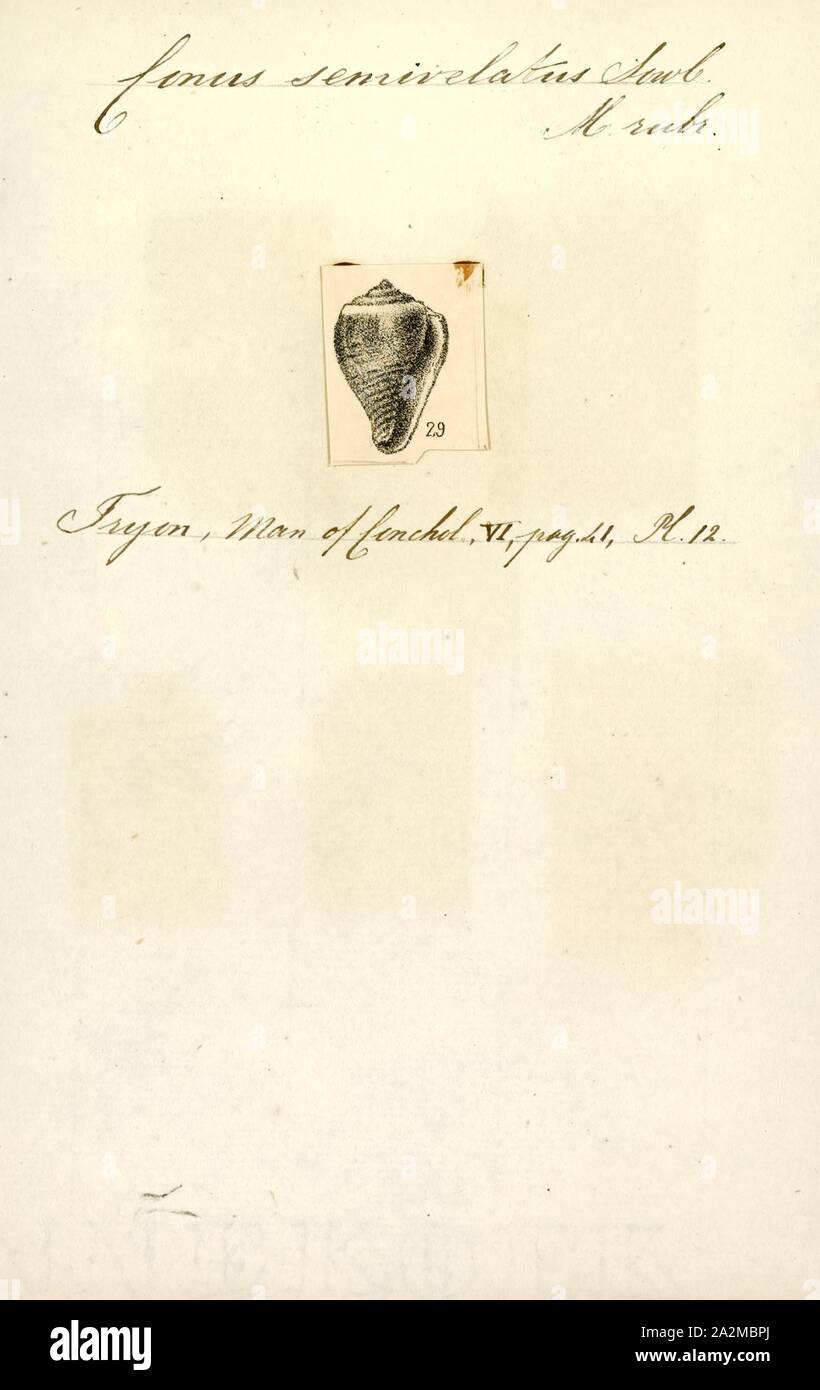 Conus semivelatus Sowb.
M. rubr.
29
Tryon, Man of Conchol, VI, pag. 41, Pl. 12.
alamy
alamy
alamy
Image ID: A2MBPJ
www.alamy.com